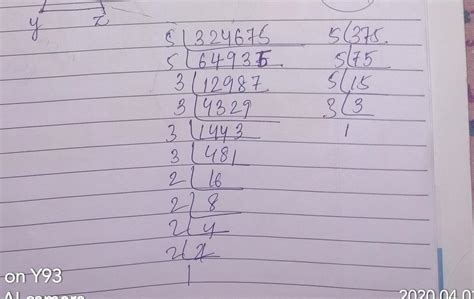 y z
5 324675 5 375
5 64935 5 75
3 12987 5 15
3 4329 3 3
3 1443 1
3 481
2 16
2 8
2 4
2 2
1
on Y93
AI camera 2020.04.0